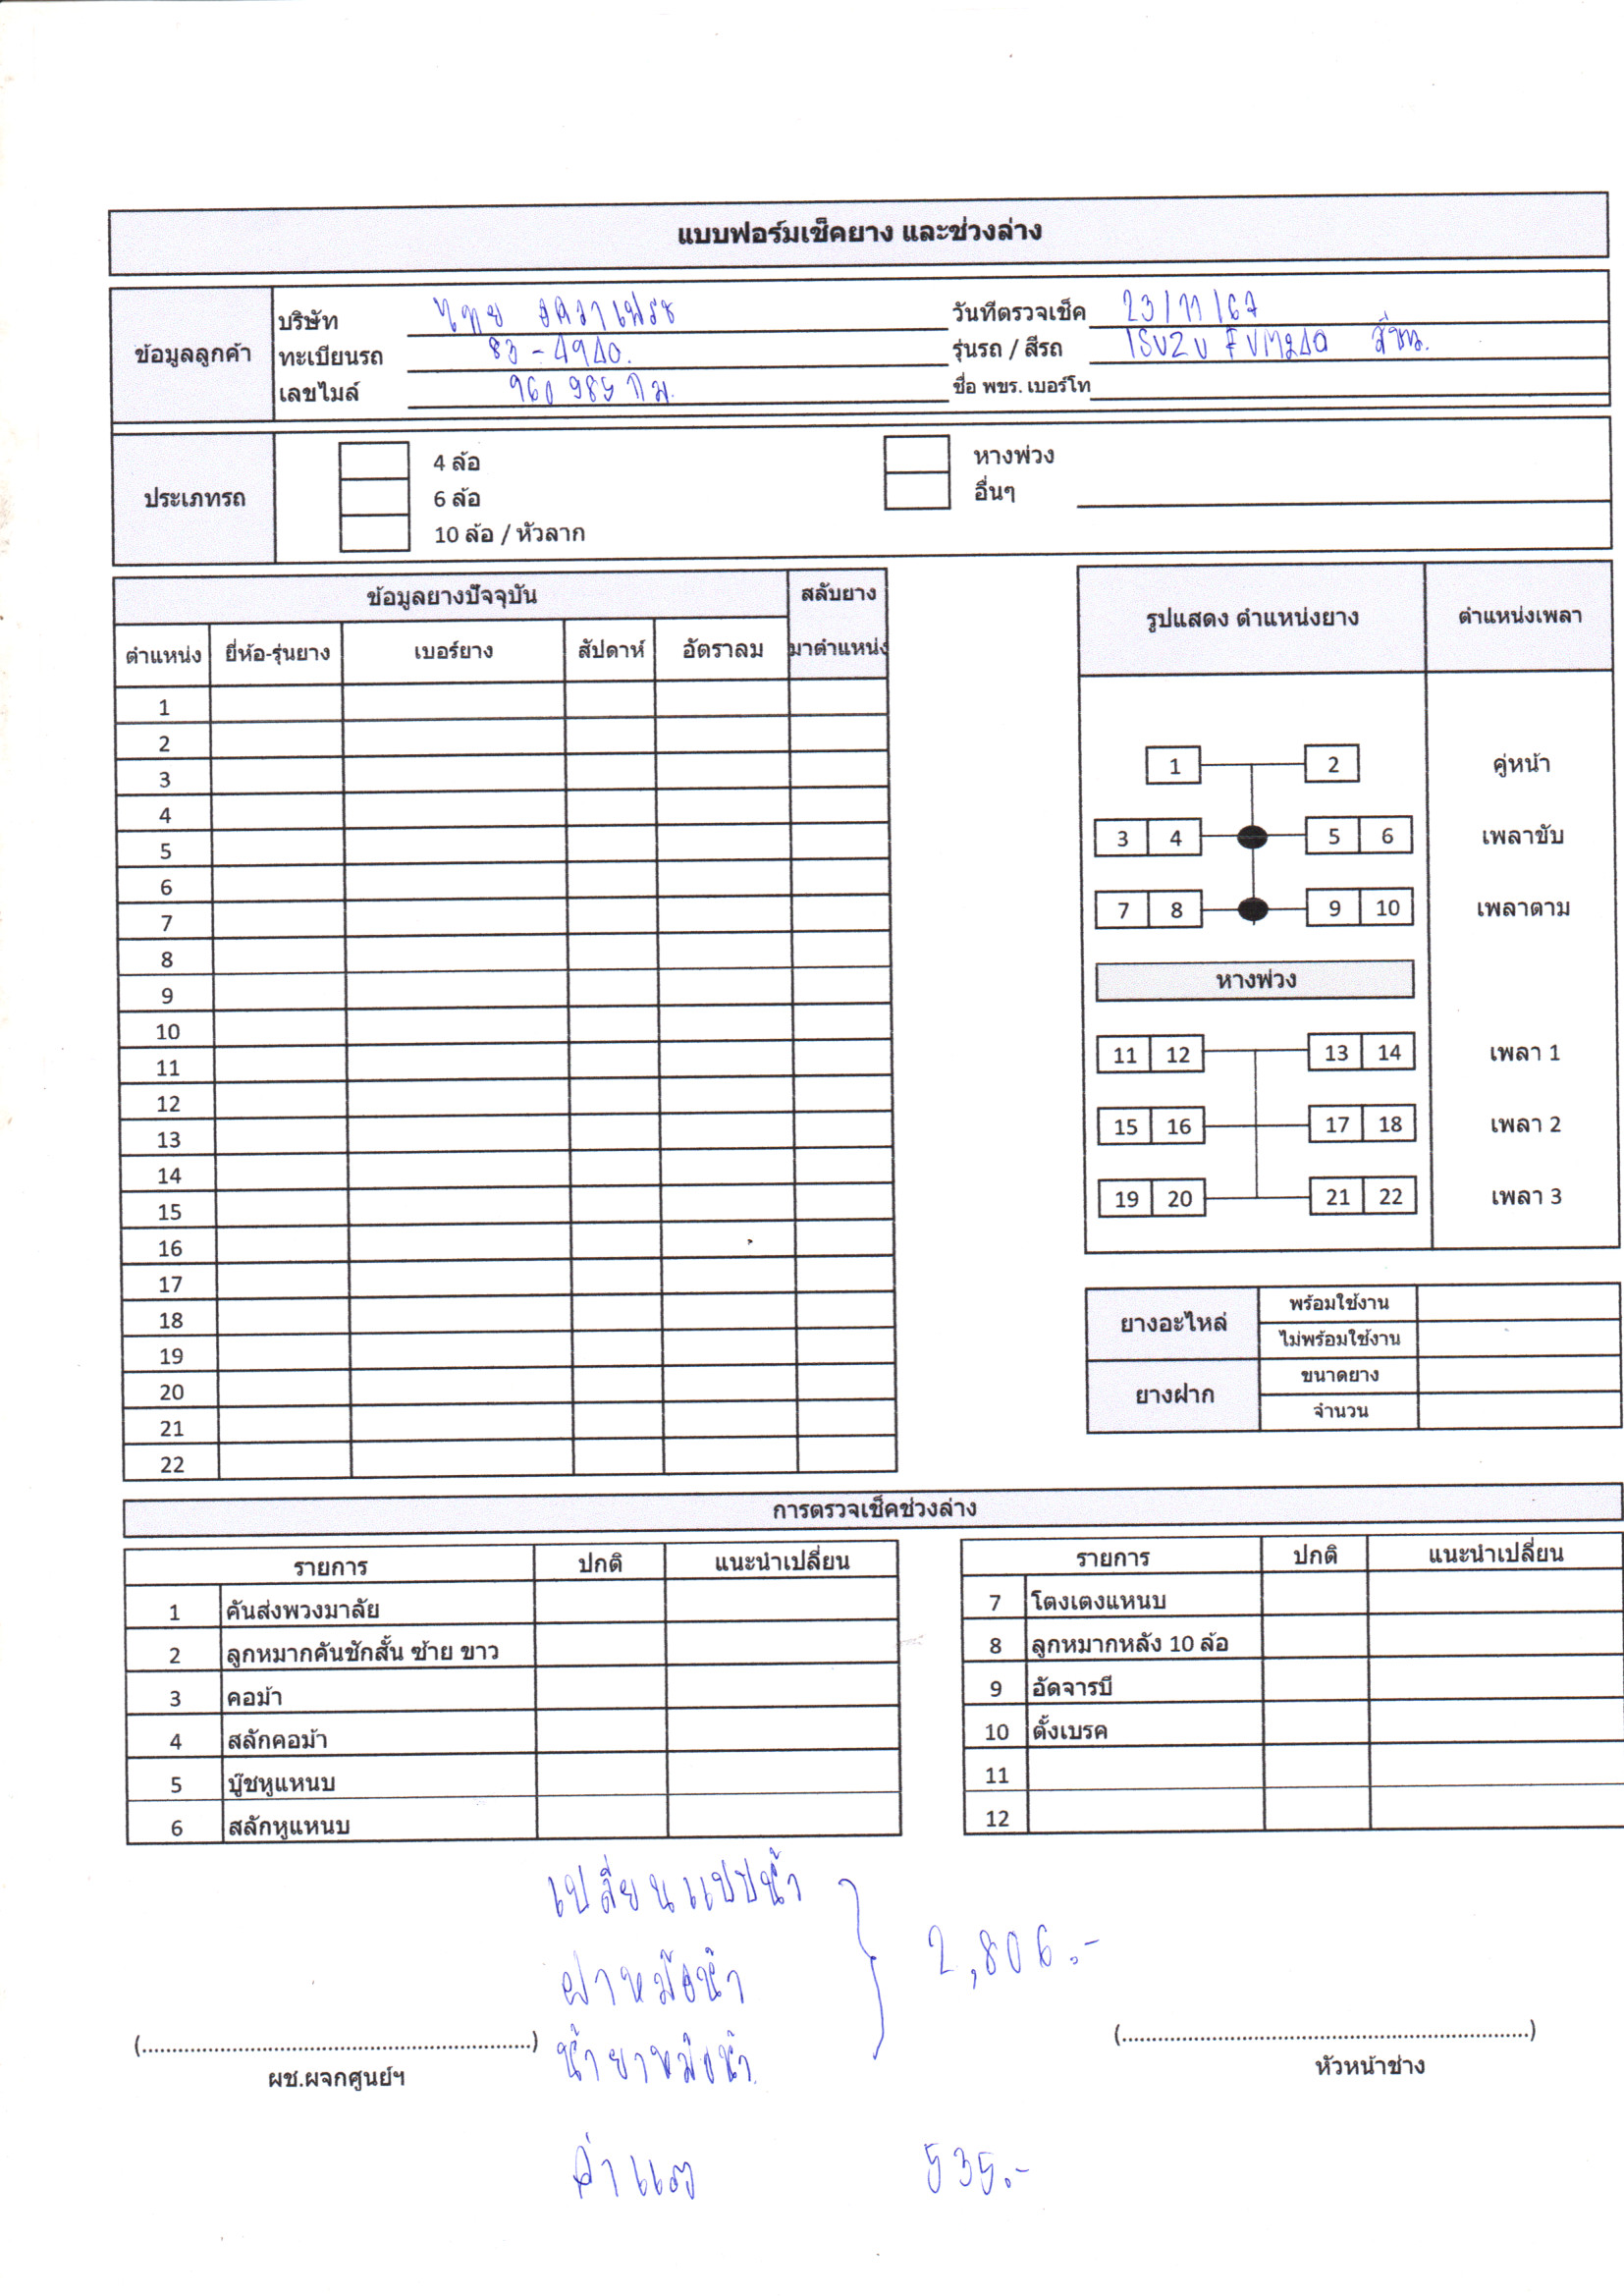 แบบฟอร์มเช็คยาง และช่วงล่าง
ข้อมูลลูกค้า
บริษัท ไทย อควาเฟรช
วันที่ตรวจเช็ค 23/11/67
ทะเบียนรถ 83-4940.
รุ่นรถ / สีรถ ISUZU
เลขไมล์ 960 985 กม.
ชื่อ พขร. เบอร์โท
ประเภทรถ
4 ล้อ
หางพ่วง
6 ล้อ
อื่นๆ
10 ล้อ / หัวลาก
ข้อมูลยางปัจจุบัน สลับยาง
ตำแหน่ง ยี่ห้อ-รุ่นยาง เบอร์ยาง สัปดาห์ อัตราลม มาตำแหน่ง
1
2
3
4
5
6
7
8
9
10
11
12
13
14
15
16
17
18
19
20
21
22
รูปแสดง ตำแหน่งยาง ตำแหน่งเพลา
1 2 คู่หน้า
3 4 5 6 เพลาขับ
7 8 9 10 เพลาตาม
หางพ่วง
11 12 13 14 เพลา 1
15 16 17 18 เพลา 2
19 20 21 22 เพลา 3
ยางอะไหล่ พร้อมใช้งาน
ไม่พร้อมใช้งาน
ยางฝาก ขนาดยาง
จำนวน
การตรวจเช็คช่วงล่าง
รายการ ปกติ แนะนำเปลี่ยน
1 คันส่งพวงมาลัย
2 ลูกหมากคันชักสั้น ซ้าย ขาว
3 คอม้า
4 สลักคอม้า
5 บู๊ชหูแหนบ
6 สลักหูแหนบ
รายการ ปกติ แนะนำเปลี่ยน
7 โตงเตงแหนบ
8 ลูกหมากหลัง 10 ล้อ
9 อัดจารบี
10 ตั้งเบรค
11
12
เปลี่ยนแปปน้ำ
ฝาหม้อน้ำ 2,806.-
น้ำยาหม้อน้ำ
(..................................................................)
ผช.ผจกศูนย์ฯ
(.....................................................................)
หัวหน้าช่าง
ค่าแรง 535.-